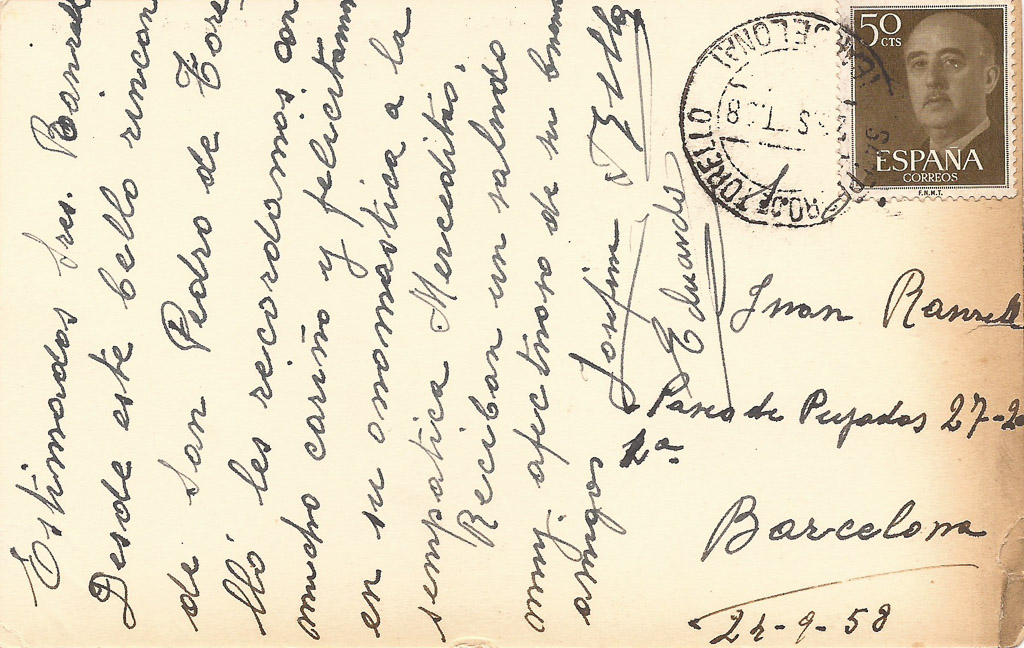 Estimados Sres. Ranrell
Desde este bello rincon
de San Pedro de Tore
lló les recordamos con
mucho cariño y felicitamos
en su onomastica a la
sempatica Merceditas.
Reciban un saludo
muy afectuoso de su buenos
amigos Josefina
Eduardo
50
CTS
ESPAÑA
CORREOS
F.N.M.T.
S. PEDRO DE TORELLO
(BARCELONA)
Juan Ranrell
Paseo de Pujadas 27-2
1ª
Barcelona
24-9-58